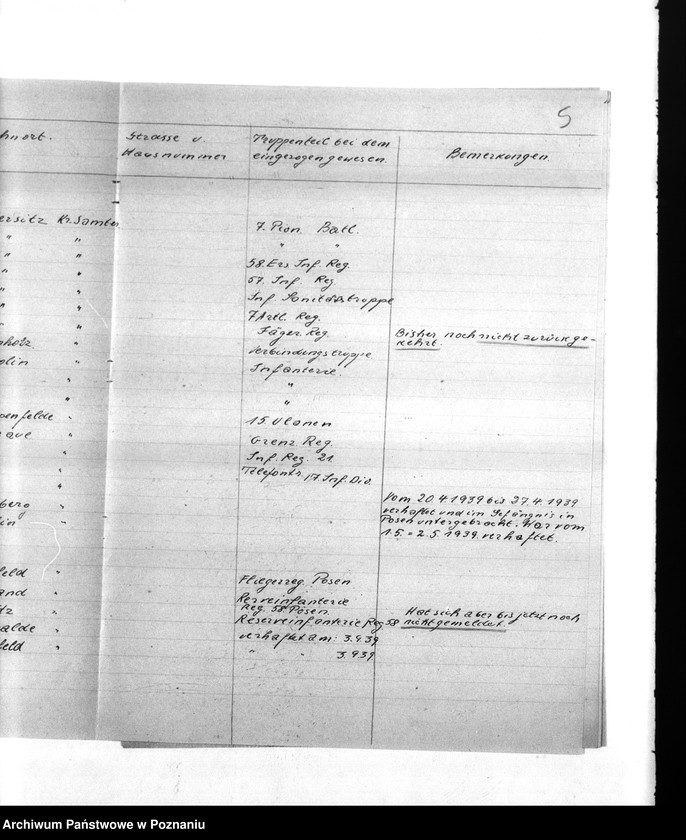 5
Strasse u.
Truppenteil bei dem
Hausnummer
eingezogen gewesen.
Bemerkungen
Kr. Samter
7. Pion. Batl.
" "
58. Ers. Inf. Reg.
57. Inf. Reg.
Inf. Sanitätstruppe
7 Artl. Reg.
Jäger Reg.
Bisher noch nicht zurückge-
kehrt.
Verbindungstruppe
Infanterie.
"
"
15. Ulanen
Grenz. Reg.
Inf. Reg. 21.
Telefontr. 17 Inf. Div.
Vom 20.4.1939 bis 27.4.1939
verhaftet und im Gefängnis in
Posen untergebracht. War vom
1.5. - 2.5.1939. verhaftet.
Fliegerreg. Posen
Rerveinfanterie
Reg. 58 Posen.
Hat sich aber bis jetzt noch
Reserveinfanterie Reg 58 nicht gemeldet.
verhaftet am: 3.9.39
" " 3.9.39
Archiwum Państwowe w Poznaniu